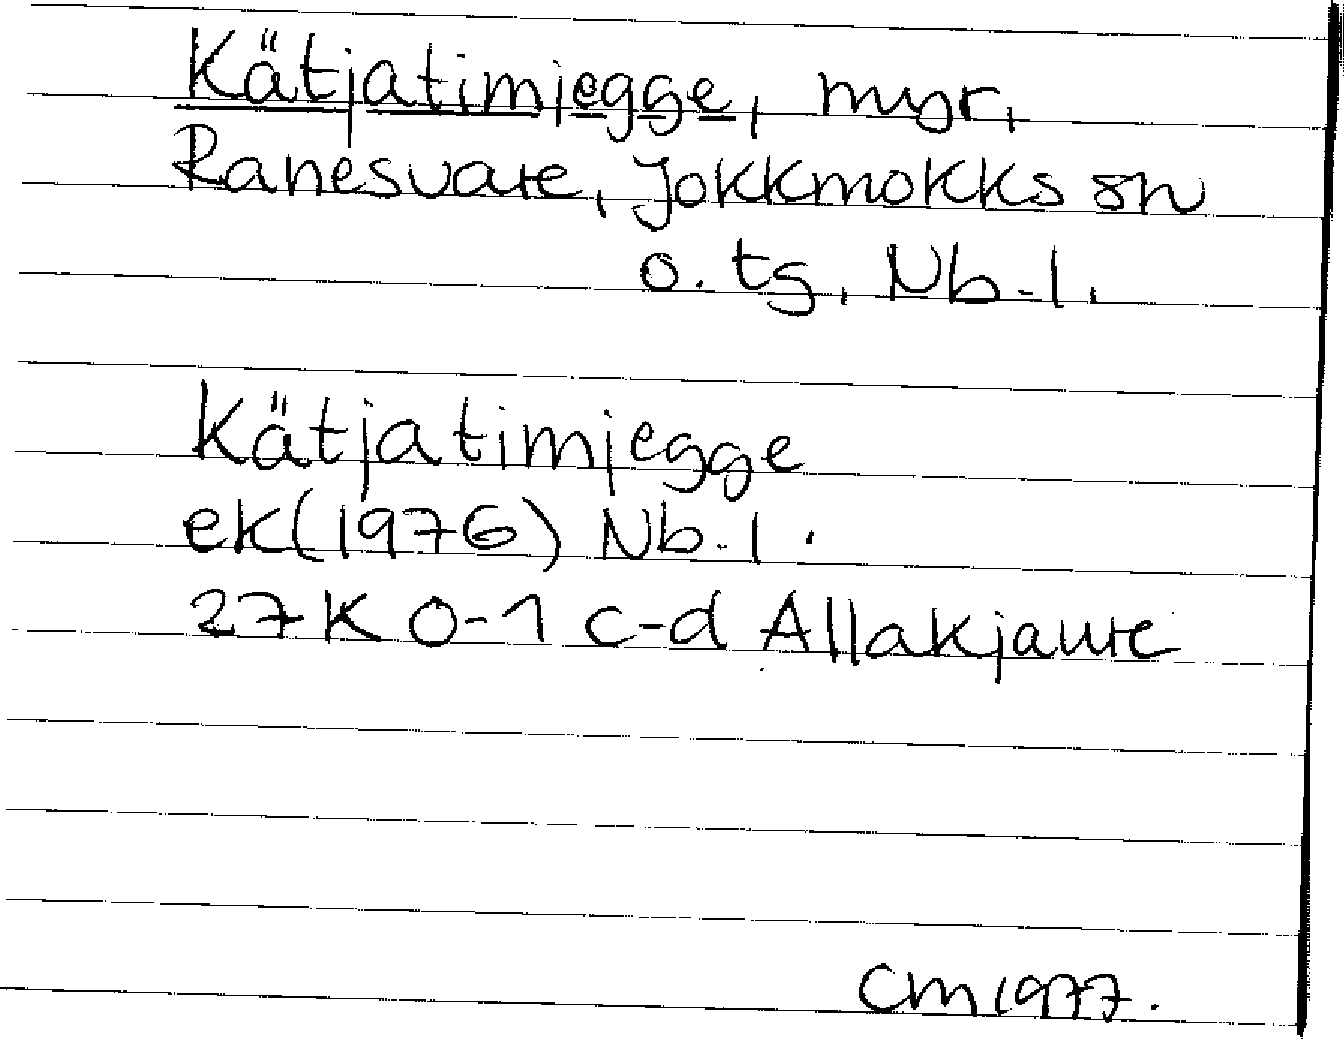 Kätjatimjegge, myr,
Ranesvare, Jokkmokks sn
o. tg, Nb-l.
Kätjatimjegge
ek(1976) Nb-l.
27K 0-1 c-d Allakjaure
CM 1977.